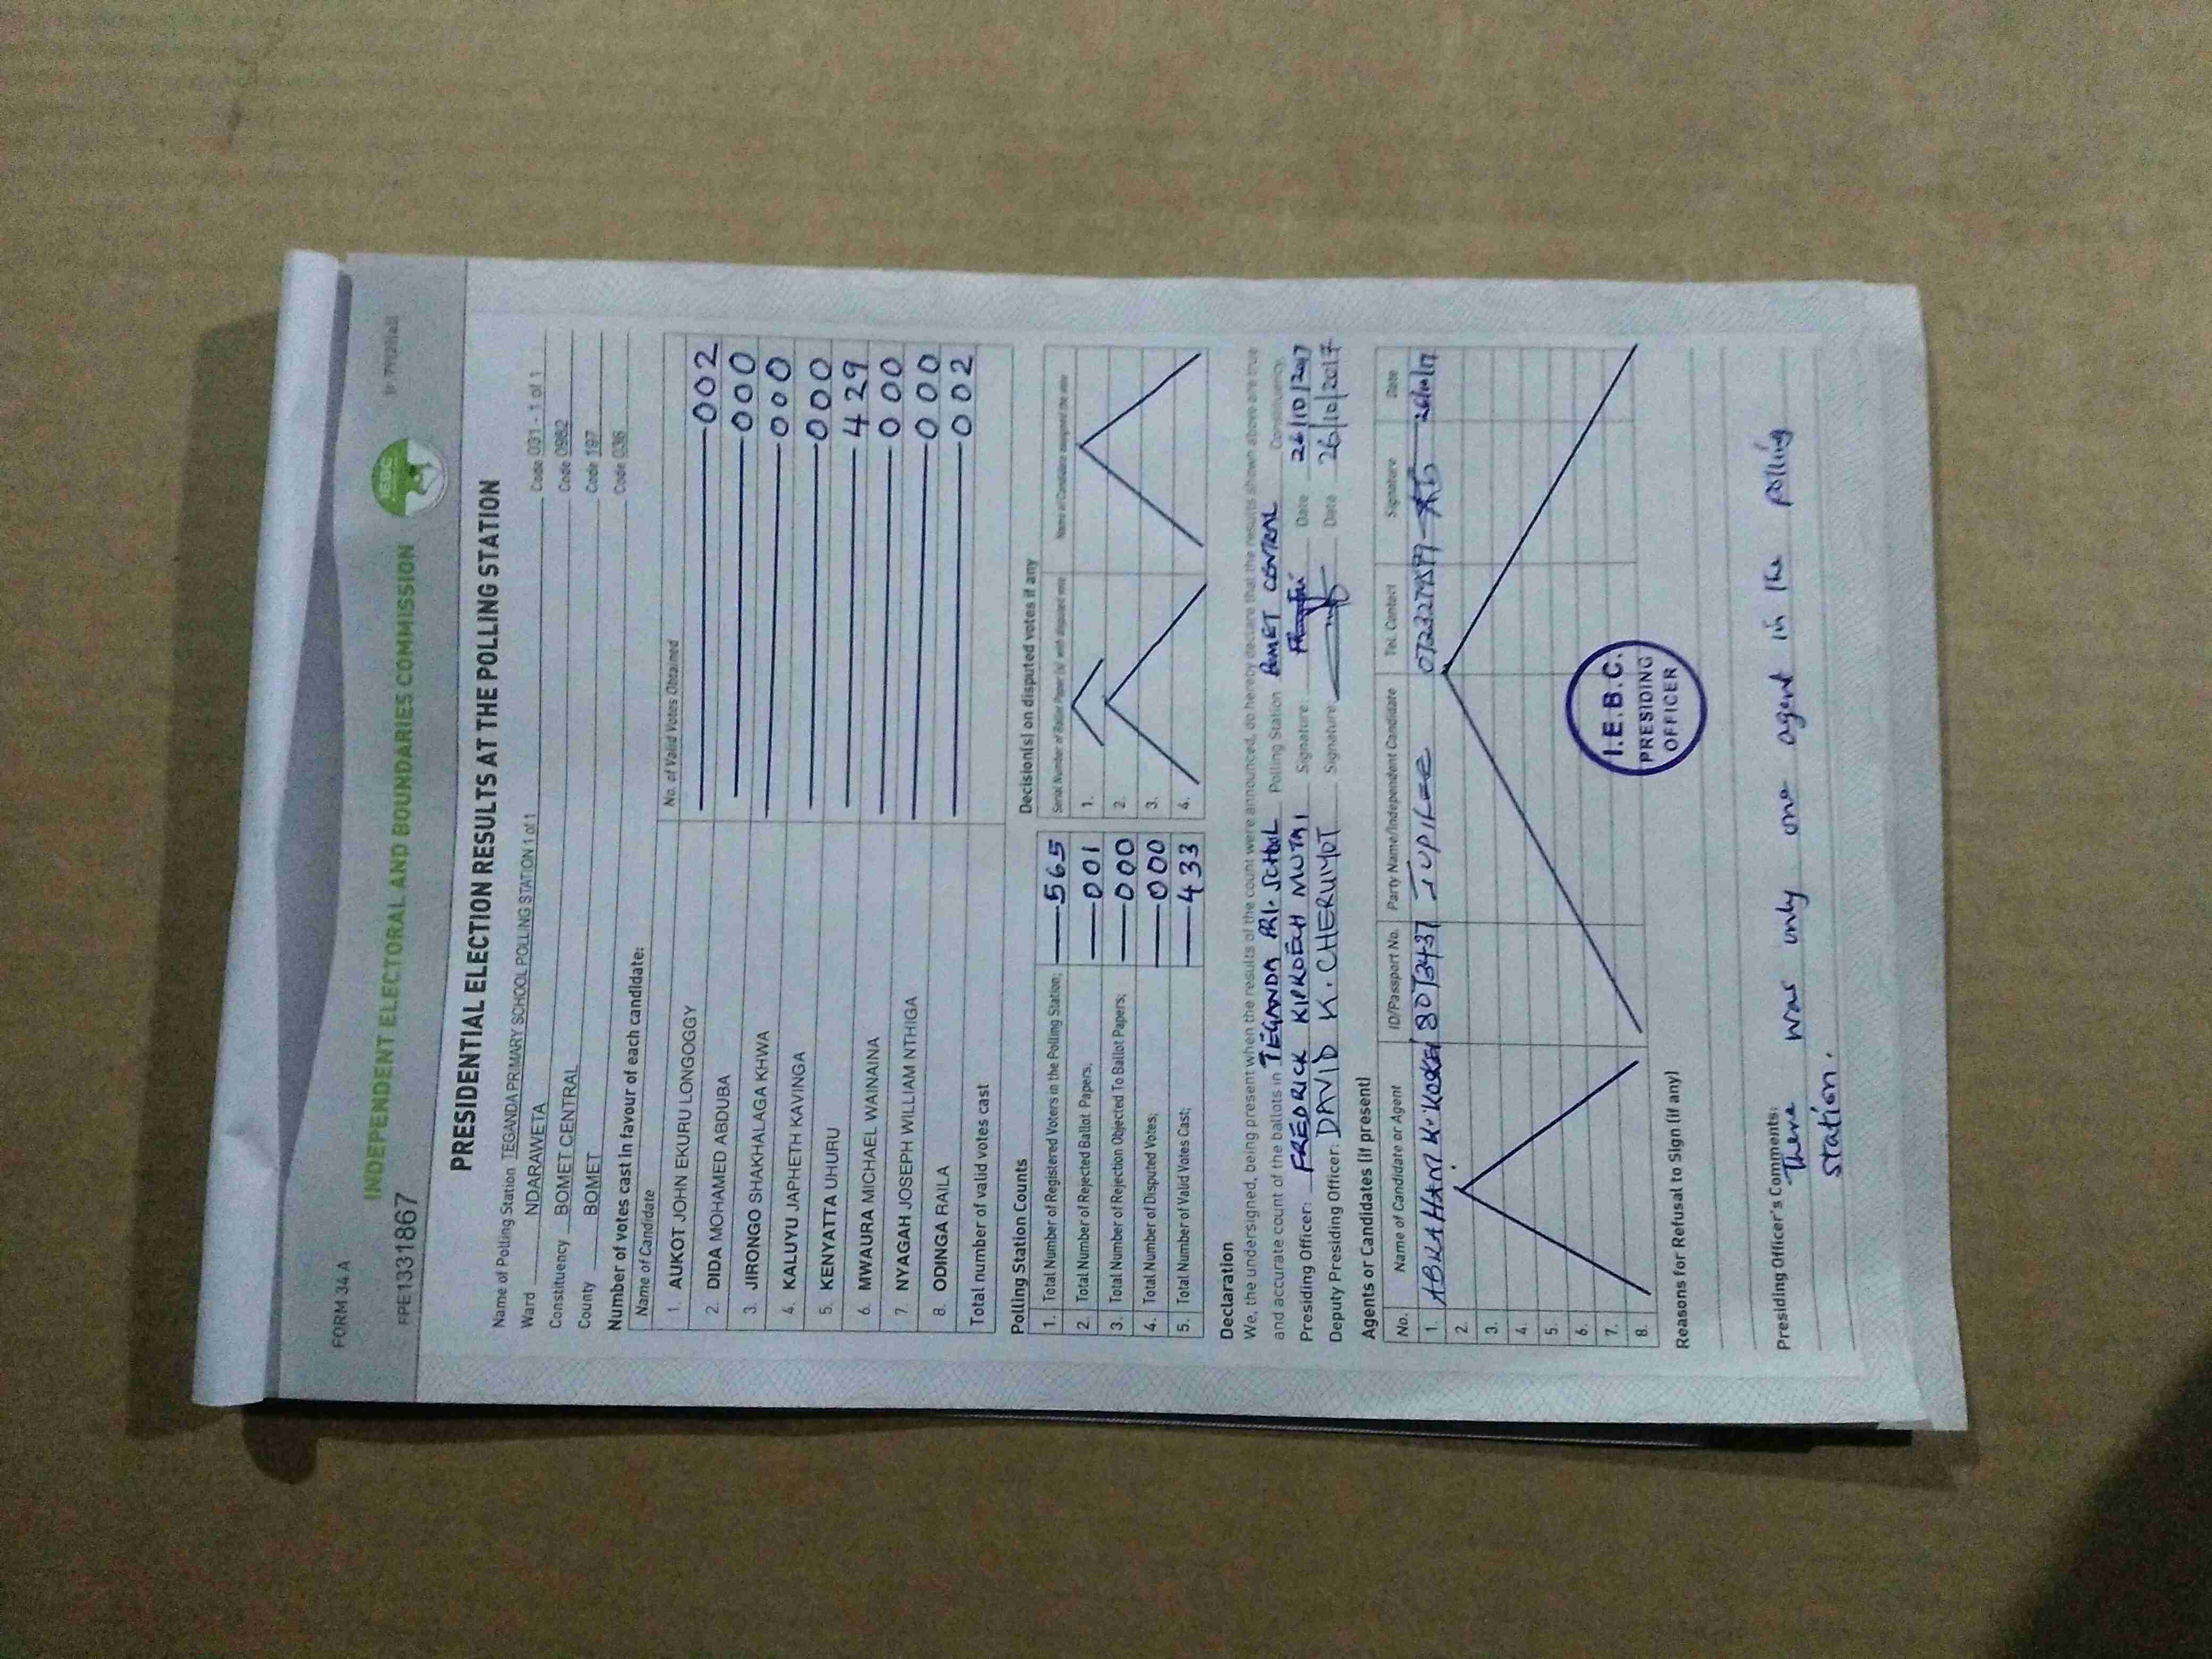 FORM 34 A
INDEPENDENT ELECTORAL AND BOUNDARIES COMMISSION
IEBC
FPE1331867
PRESIDENTIAL ELECTION RESULTS AT THE POLLING STATION
Name of Polling Station TEGANDA PRIMARY SCHOOL POLLING STATION 1 of 1 Code 031 - 1 of 1
Ward NDARAWETA Code 0982
Constituency BOMET CENTRAL Code 197
County BOMET Code 036
Number of votes cast in favour of each candidate:
Name of Candidate No. of Valid Votes Obtained
1. AUKOT JOHN EKURU LONGOGGY 002
2. DIDA MOHAMED ABDUBA 000
3. JIRONGO SHAKHALAGA KHWA 000
4. KALUYU JAPHETH KAVINGA 000
5. KENYATTA UHURU 429
6. MWAURA MICHAEL WAINAINA 000
7. NYAGAH JOSEPH WILLIAM NTHIGA 000
8. ODINGA RAILA 002
Total number of valid votes cast
Polling Station Counts
1. Total Number of Registered Voters in the Polling Station; 565
2. Total Number of Rejected Ballot Papers; 001
3. Total Number of Rejection Objected To Ballot Papers; 000
4. Total Number of Disputed Votes; 000
5. Total Number of Valid Votes Cast; 433
Decision(s) on disputed votes if any
Serial Number of Ballot Paper (s) with disputed vote Name of Candidate assigned the vote
1.
2.
3.
4.
Declaration
We, the undersigned, being present when the results of the count were announced, do hereby declare that the results shown above are true
and accurate count of the ballots in TEGANDA PRI. SCHOOL Polling Station BOMET CENTRAL Constituency.
Presiding Officer: FREDRICK KIPKOECH MUTAI Signature: Date 26/10/2017
Deputy Presiding Officer: DAVID K. CHERUIYOT Signature: Date 26/10/2017
Agents or Candidates (if present)
No. Name of Candidate or Agent ID/Passport No. Party Name/Independent Candidate Tel. Contact Signature Date
1. ABRAHAM K. KOSKEI JUPILEE 26/10/17
2.
3.
4.
5.
6.
7.
8.
I.E.B.C.
PRESIDING
OFFICER
Reasons for Refusal to Sign (if any)
Presiding Officer's Comments:
There was only one agent in the polling
station.